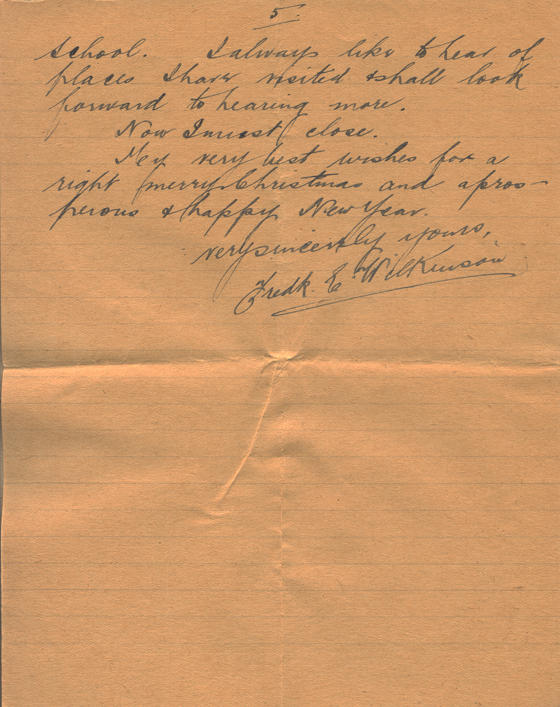 5.
school. I always like to hear of
places I have visited & shall look
forward to hearing more.
Now I must close.
My very best wishes for a
right merry Christmas and a pros-
perous & happy New Year.
very sincerely yours,
Fredk. E. Wilkinson